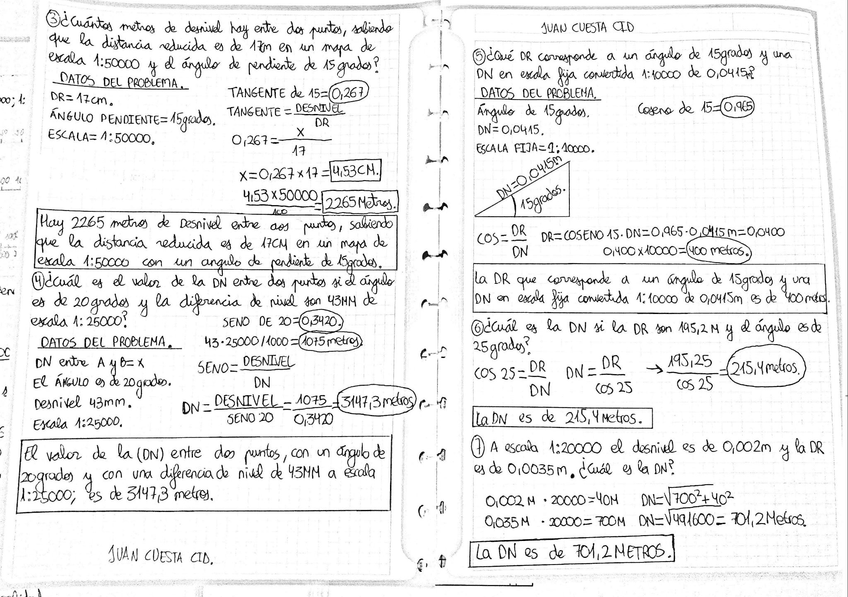 ③ ¿Cuántos metros de desnivel hay entre dos puntos, sabiendo
que la distancia reducida es de 17m en un mapa de
escala 1:50000 y el ángulo de pendiente de 15 grados?
DATOS DEL PROBLEMA.
DR=17cm.
ÁNGULO PENDIENTE=15grados.
ESCALA=1:50000.
TANGENTE de 15=0,267
TANGENTE=DESNIVEL/DR
0,267=X/17
X=0,267×17=4,53CM.
4,53×50000/100=2265 Metros.
Hay 2265 metros de Desnivel entre dos puntos, sabiendo
que la distancia reducida es de 17CM en un mapa de
escala 1:50000 con un angulo de pendiente de 15grados.
④ ¿Cuál es el valor de la DN entre dos puntos si el ángulo
es de 20 grados y la diferencia de nivel son 43MM de
escala 1:25000?
SENO DE 20=0,3420.
DATOS DEL PROBLEMA.
43·25000/1000=1075 metros
DN entre A y B=X
El ÁNGULO es de 20grados.
Desnivel 43mm.
Escala 1:25000.
SENO=DESNIVEL/DN
DN=DESNIVEL/SENO 20=1075/0,3420=3147,3 metros
El valor de la (DN) entre dos puntos, con un ángulo de
20grados y con una diferencia de nivel de 43MM a escala
1:25000; es de 3147,3 metros.
JUAN CUESTA CID.
JUAN CUESTA CID
⑤ ¿Qué DR corresponde a un ángulo de 15grados y una
DN en escala fija convertida 1:10000 de 0,0415?
DATOS DEL PROBLEMA.
Ángulo de 15grados.
DN=0,0415.
ESCALA FIJA=1:10000.
Coseno de 15=0,965
DN=0,0415m
15grados.
COS=DR/DN
DR=COSENO 15·DN=0,965·0,0415m=0,0400
0,400×10000=400 metros.
La DR que corresponde a un ángulo de 15grados y una
DN en escala fija convertida 1:10000 de 0,0415m es de 400 metros.
⑥ ¿Cuál es la DN si la DR son 195,2 M y el ángulo es de
25 grados?
COS 25=DR/DN DN=DR/COS 25 → 195,25/COS 25=215,4 metros.
La DN es de 215,4 Metros.
⑦ A escala 1:20000 el desnivel es de 0,002m y la DR
es de 0,0035 m. ¿Cuál es la DN?
0,002 M · 20000=40M DN=√700²+40²
0,035M · 20000=700M DN=√491600=701,2 Metros.
La DN es de 701,2 METROS.